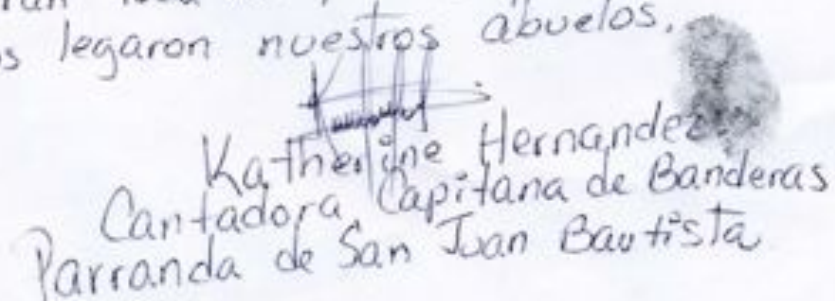 s legaron nuestros abuelos.
Katherine Hernandez
Cantadora, Capitana de Banderas
Parranda de San Juan Bautista